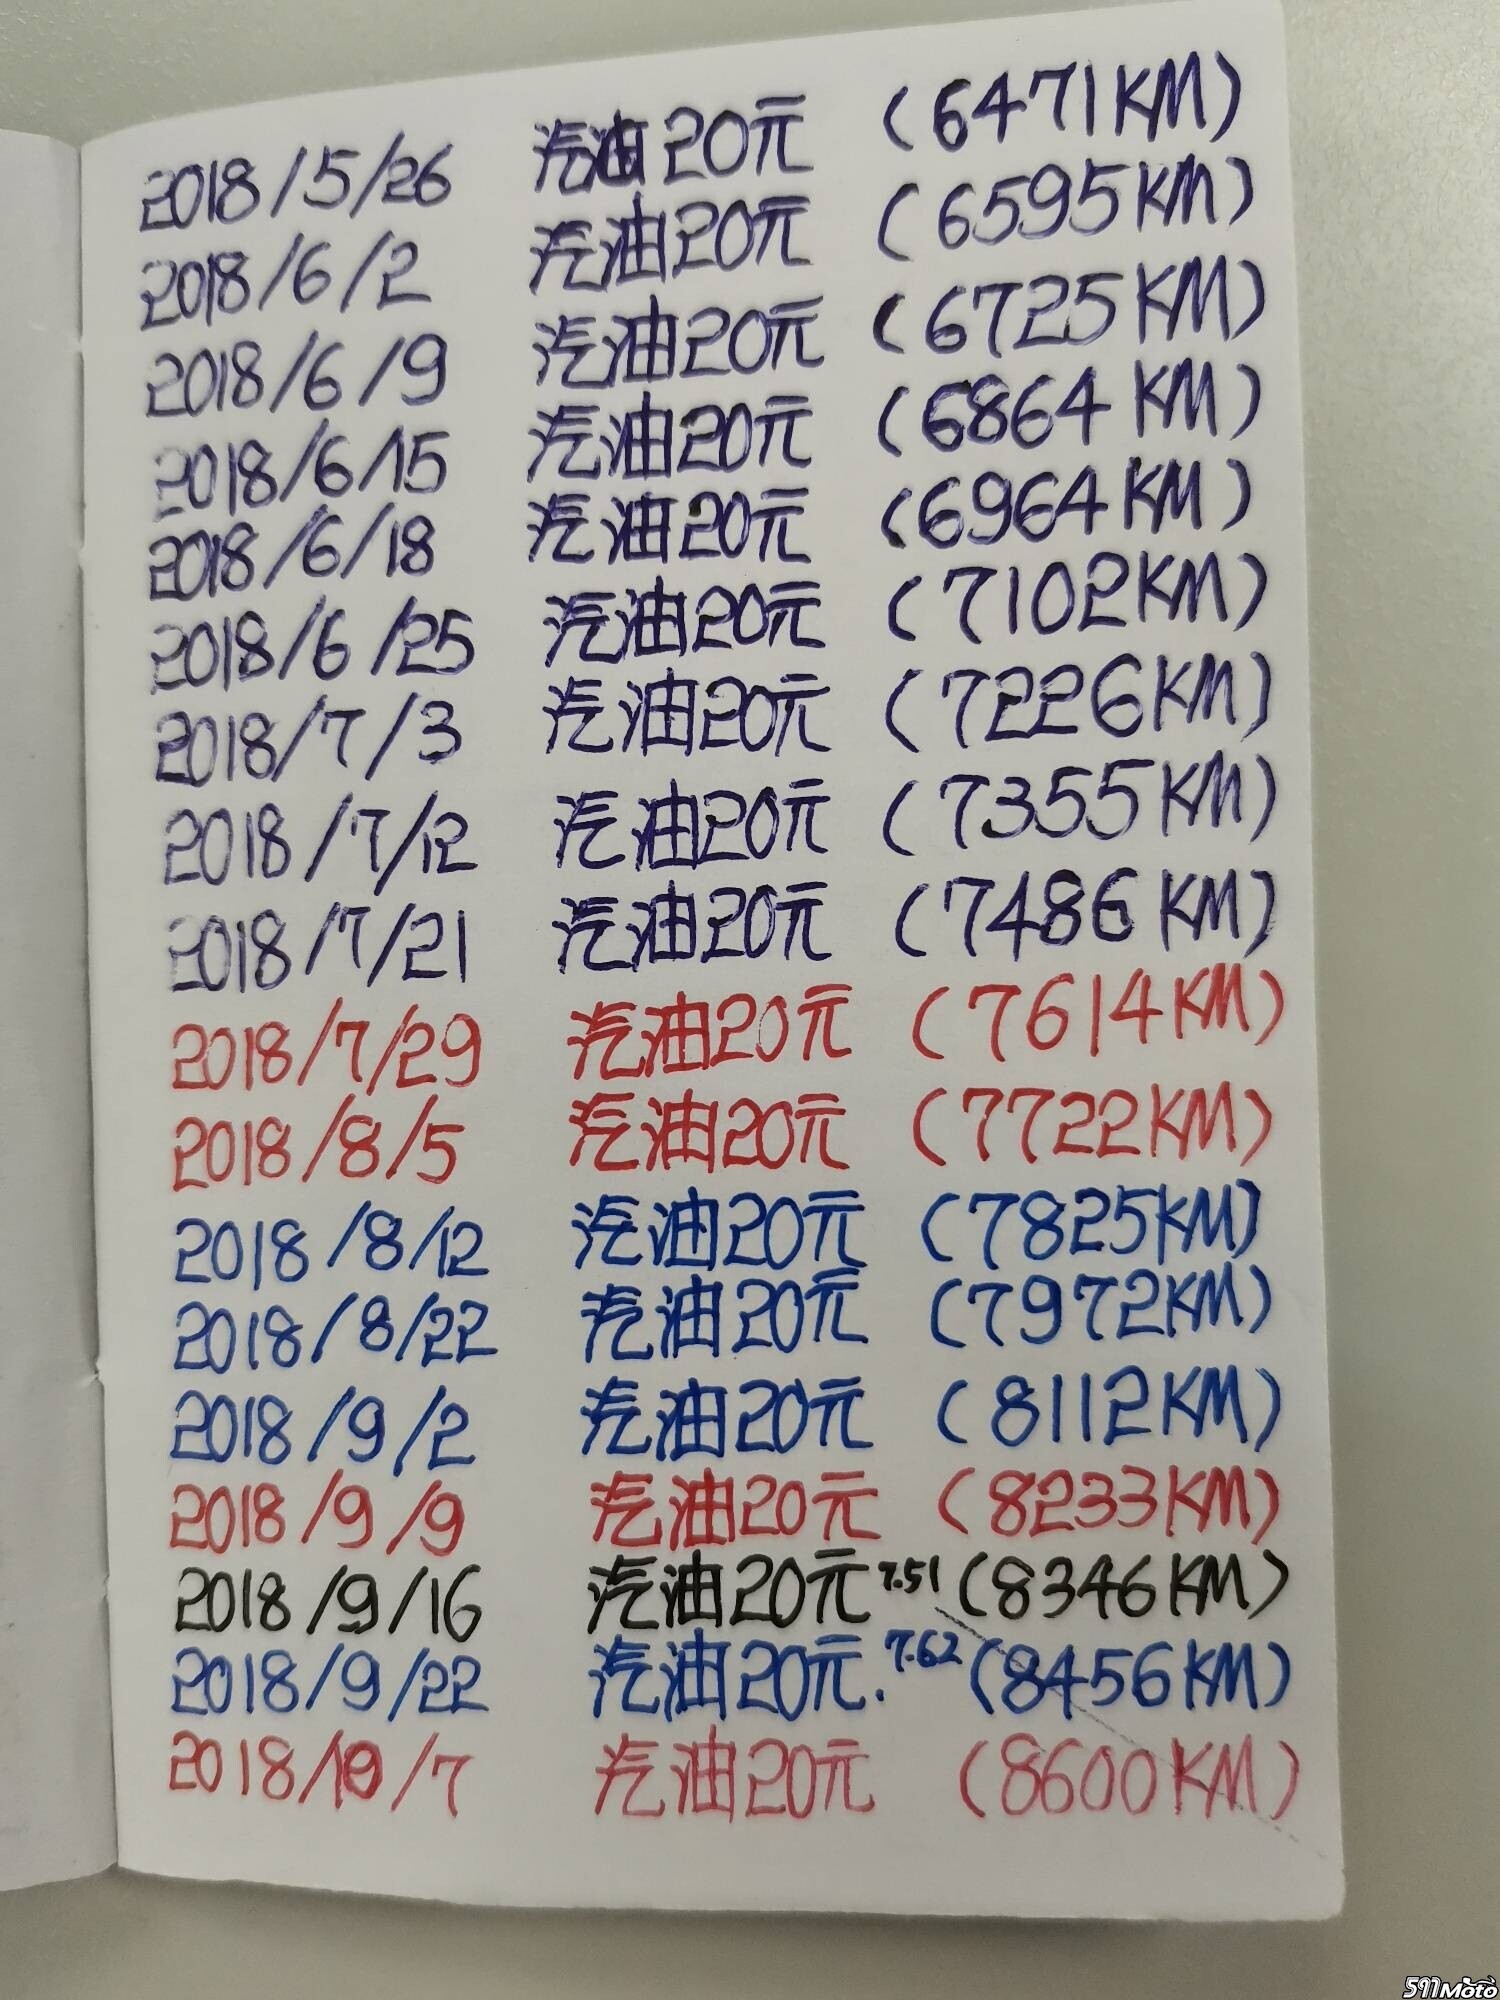 2018/5/26 汽油20元 (6471KM)
2018/6/2 汽油20元 (6595KM)
2018/6/9 汽油20元 (6725KM)
2018/6/15 汽油20元 (6864KM)
2018/6/18 汽油20元 (6964KM)
2018/6/25 汽油20元 (7102KM)
2018/7/3 汽油20元 (7226KM)
2018/7/12 汽油20元 (7355KM)
2018/7/21 汽油20元 (7486KM)
2018/7/29 汽油20元 (7614KM)
2018/8/5 汽油20元 (7722KM)
2018/8/12 汽油20元 (7825KM)
2018/8/22 汽油20元 (7972KM)
2018/9/2 汽油20元 (8112KM)
2018/9/9 汽油20元 (8233KM)
2018/9/16 汽油20元 7.51 (8346KM)
2018/9/22 汽油20元. 7.62 (8456KM)
2018/10/7 汽油20元 (8600KM)
591Moto